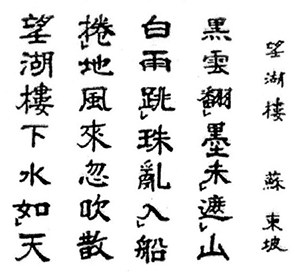 望湖樓 蘇東坡
黒雲翻墨未遮山
白雨跳珠亂入船
捲地風來忽吹散
望湖樓下水如天